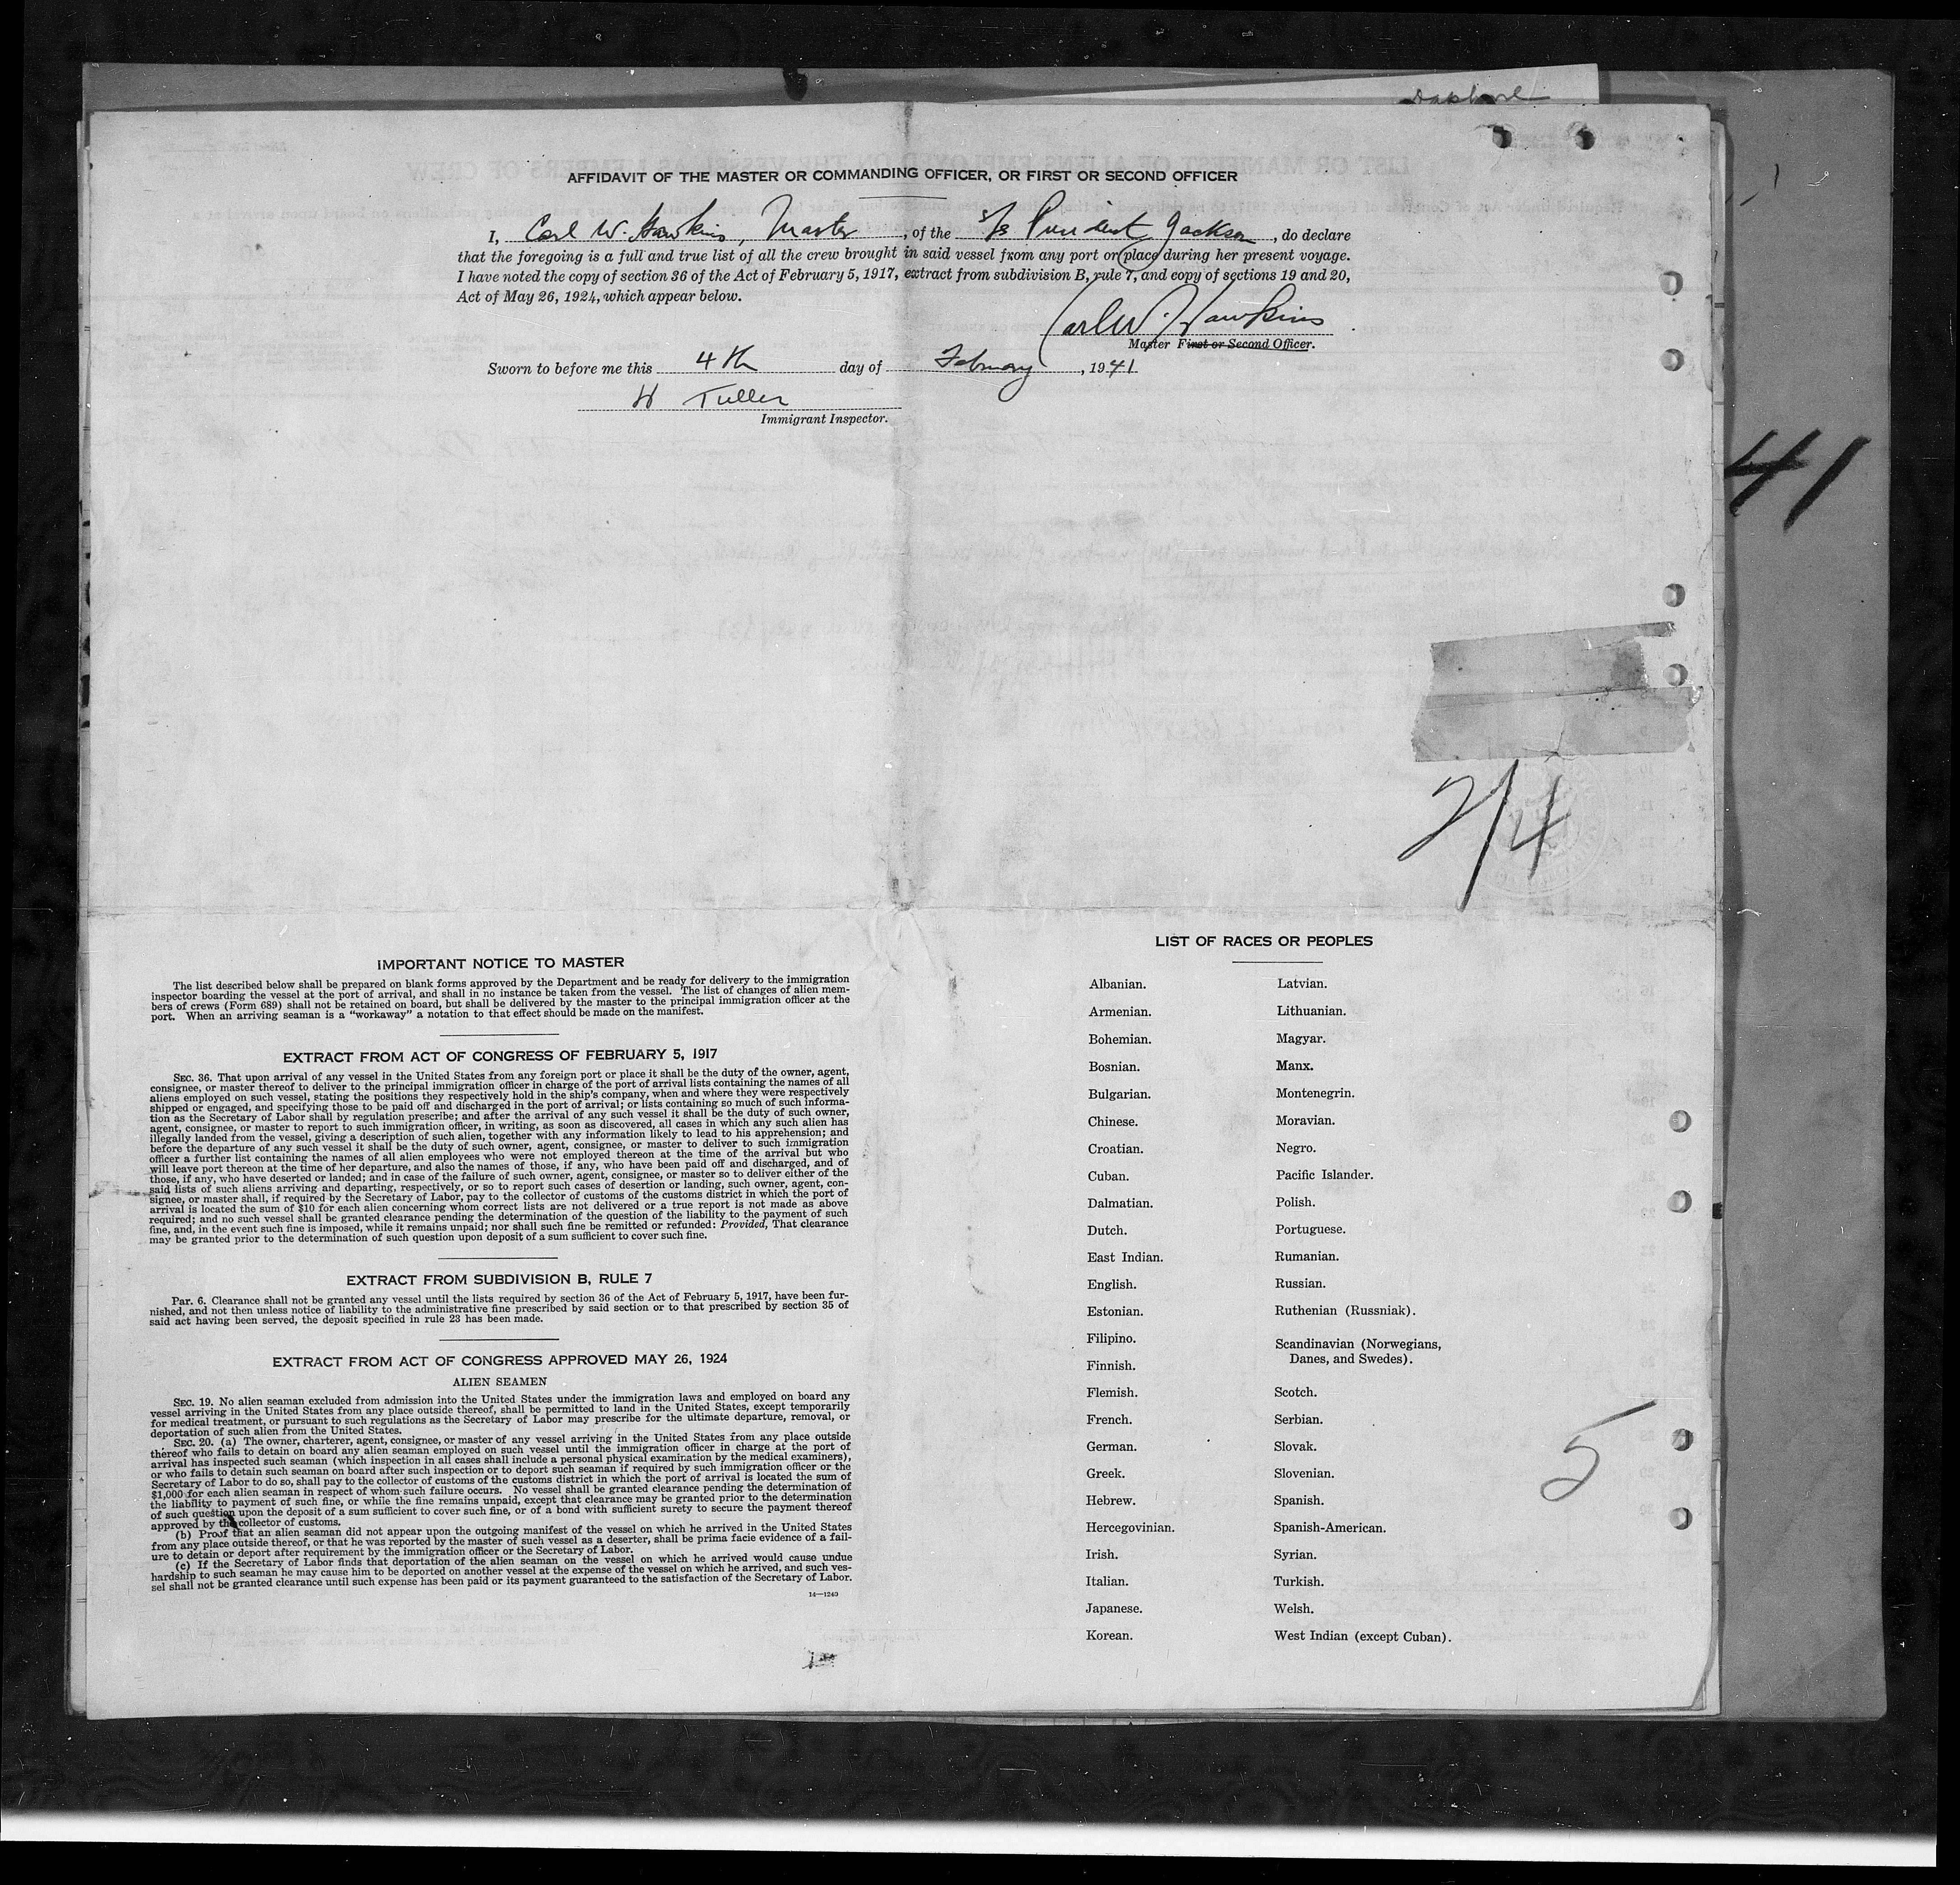 AFFIDAVIT OF THE MASTER OR COMMANDING OFFICER, OR FIRST OR SECOND OFFICER
I, Carl W. Hawkins, Master, of the S/S President Jackson, do declare
that the foregoing is a full and true list of all the crew brought in said vessel from any port or place during her present voyage.
I have noted the copy of section 36 of the Act of February 5, 1917, extract from subdivision B, rule 7, and copy of sections 19 and 20,
Act of May 26, 1924, which appear below.
Carl W. Hawkins
Master First or Second Officer.
Sworn to before me this 4th day of February, 1941
W Tuller
Immigrant Inspector.
41
2/4
IMPORTANT NOTICE TO MASTER
The list described below shall be prepared on blank forms approved by the Department and be ready for delivery to the immigration
inspector boarding the vessel at the port of arrival, and shall in no instance be taken from the vessel. The list of changes of alien mem-
bers of crews (Form 689) shall not be retained on board, but shall be delivered by the master to the principal immigration officer at the
port. When an arriving seaman is a "workaway" a notation to that effect should be made on the manifest.
EXTRACT FROM ACT OF CONGRESS OF FEBRUARY 5, 1917
SEC. 36. That upon arrival of any vessel in the United States from any foreign port or place it shall be the duty of the owner, agent,
consignee, or master thereof to deliver to the principal immigration officer in charge of the port of arrival lists containing the names of all
aliens employed on such vessel, stating the positions they respectively hold in the ship's company, when and where they were respectively
shipped or engaged, and specifying those to be paid off and discharged in the port of arrival; or lists containing so much of such informa-
tion as the Secretary of Labor shall by regulation prescribe; and after the arrival of any such vessel it shall be the duty of such owner,
agent, consignee, or master to report to such immigration officer, in writing, as soon as discovered, all cases in which any such alien has
illegally landed from the vessel, giving a description of such alien, together with any information likely to lead to his apprehension; and
before the departure of any such vessel it shall be the duty of such owner, agent, consignee, or master to deliver to such immigration
officer a further list containing the names of all alien employees who were not employed thereon at the time of the arrival but who
will leave port thereon at the time of her departure, and also the names of those, if any, who have been paid off and discharged, and of
those, if any, who have deserted or landed; and in case of the failure of such owner, agent, consignee, or master so to deliver either of the
said lists of such aliens arriving and departing, respectively, or so to report such cases of desertion or landing, such owner, agent, con-
signee, or master shall, if required by the Secretary of Labor, pay to the collector of customs of the customs district in which the port of
arrival is located the sum of $10 for each alien concerning whom correct lists are not delivered or a true report is not made as above
required; and no such vessel shall be granted clearance pending the determination of the question of the liability to the payment of such
fine, and, in the event such fine is imposed, while it remains unpaid; nor shall such fine be remitted or refunded: Provided, That clearance
may be granted prior to the determination of such question upon deposit of a sum sufficient to cover such fine.
EXTRACT FROM SUBDIVISION B, RULE 7
Par. 6. Clearance shall not be granted any vessel until the lists required by section 36 of the Act of February 5, 1917, have been fur-
nished, and not then unless notice of liability to the administrative fine prescribed by said section or to that prescribed by section 35 of
said act having been served, the deposit specified in rule 23 has been made.
EXTRACT FROM ACT OF CONGRESS APPROVED MAY 26, 1924
ALIEN SEAMEN
SEC. 19. No alien seaman excluded from admission into the United States under the immigration laws and employed on board any
vessel arriving in the United States from any place outside thereof, shall be permitted to land in the United States, except temporarily
for medical treatment, or pursuant to such regulations as the Secretary of Labor may prescribe for the ultimate departure, removal, or
deportation of such alien from the United States.
SEC. 20. (a) The owner, charterer, agent, consignee, or master of any vessel arriving in the United States from any place outside
thereof who fails to detain on board any alien seaman employed on such vessel until the immigration officer in charge at the port of
arrival has inspected such seaman (which inspection in all cases shall include a personal physical examination by the medical examiners),
or who fails to detain such seaman on board after such inspection or to deport such seaman if required by such immigration officer or the
Secretary of Labor to do so, shall pay to the collector of customs of the customs district in which the port of arrival is located the sum of
$1,000 for each alien seaman in respect of whom such failure occurs. No vessel shall be granted clearance pending the determination of
the liability to payment of such fine, or while the fine remains unpaid, except that clearance may be granted prior to the determination
of such question upon the deposit of a sum sufficient to cover such fine, or of a bond with sufficient surety to secure the payment thereof
approved by the collector of customs.
(b) Proof that an alien seaman did not appear upon the outgoing manifest of the vessel on which he arrived in the United States
from any place outside thereof, or that he was reported by the master of such vessel as a deserter, shall be prima facie evidence of a fail-
ure to detain or deport after requirement by the immigration officer or the Secretary of Labor.
(c) If the Secretary of Labor finds that deportation of the alien seaman on the vessel on which he arrived would cause undue
hardship to such seaman he may cause him to be deported on another vessel at the expense of the vessel on which he arrived, and such ves-
sel shall not be granted clearance until such expense has been paid or its payment guaranteed to the satisfaction of the Secretary of Labor.
14—1240
LIST OF RACES OR PEOPLES
Albanian.
Armenian.
Bohemian.
Bosnian.
Bulgarian.
Chinese.
Croatian.
Cuban.
Dalmatian.
Dutch.
East Indian.
English.
Estonian.
Filipino.
Finnish.
Flemish.
French.
German.
Greek.
Hebrew.
Hercegovinian.
Irish.
Italian.
Japanese.
Korean.
Latvian.
Lithuanian.
Magyar.
Manx.
Montenegrin.
Moravian.
Negro.
Pacific Islander.
Polish.
Portuguese.
Rumanian.
Russian.
Ruthenian (Russniak).
Scandinavian (Norwegians,
Danes, and Swedes).
Scotch.
Serbian.
Slovak.
Slovenian.
Spanish.
Spanish-American.
Syrian.
Turkish.
Welsh.
West Indian (except Cuban).
5